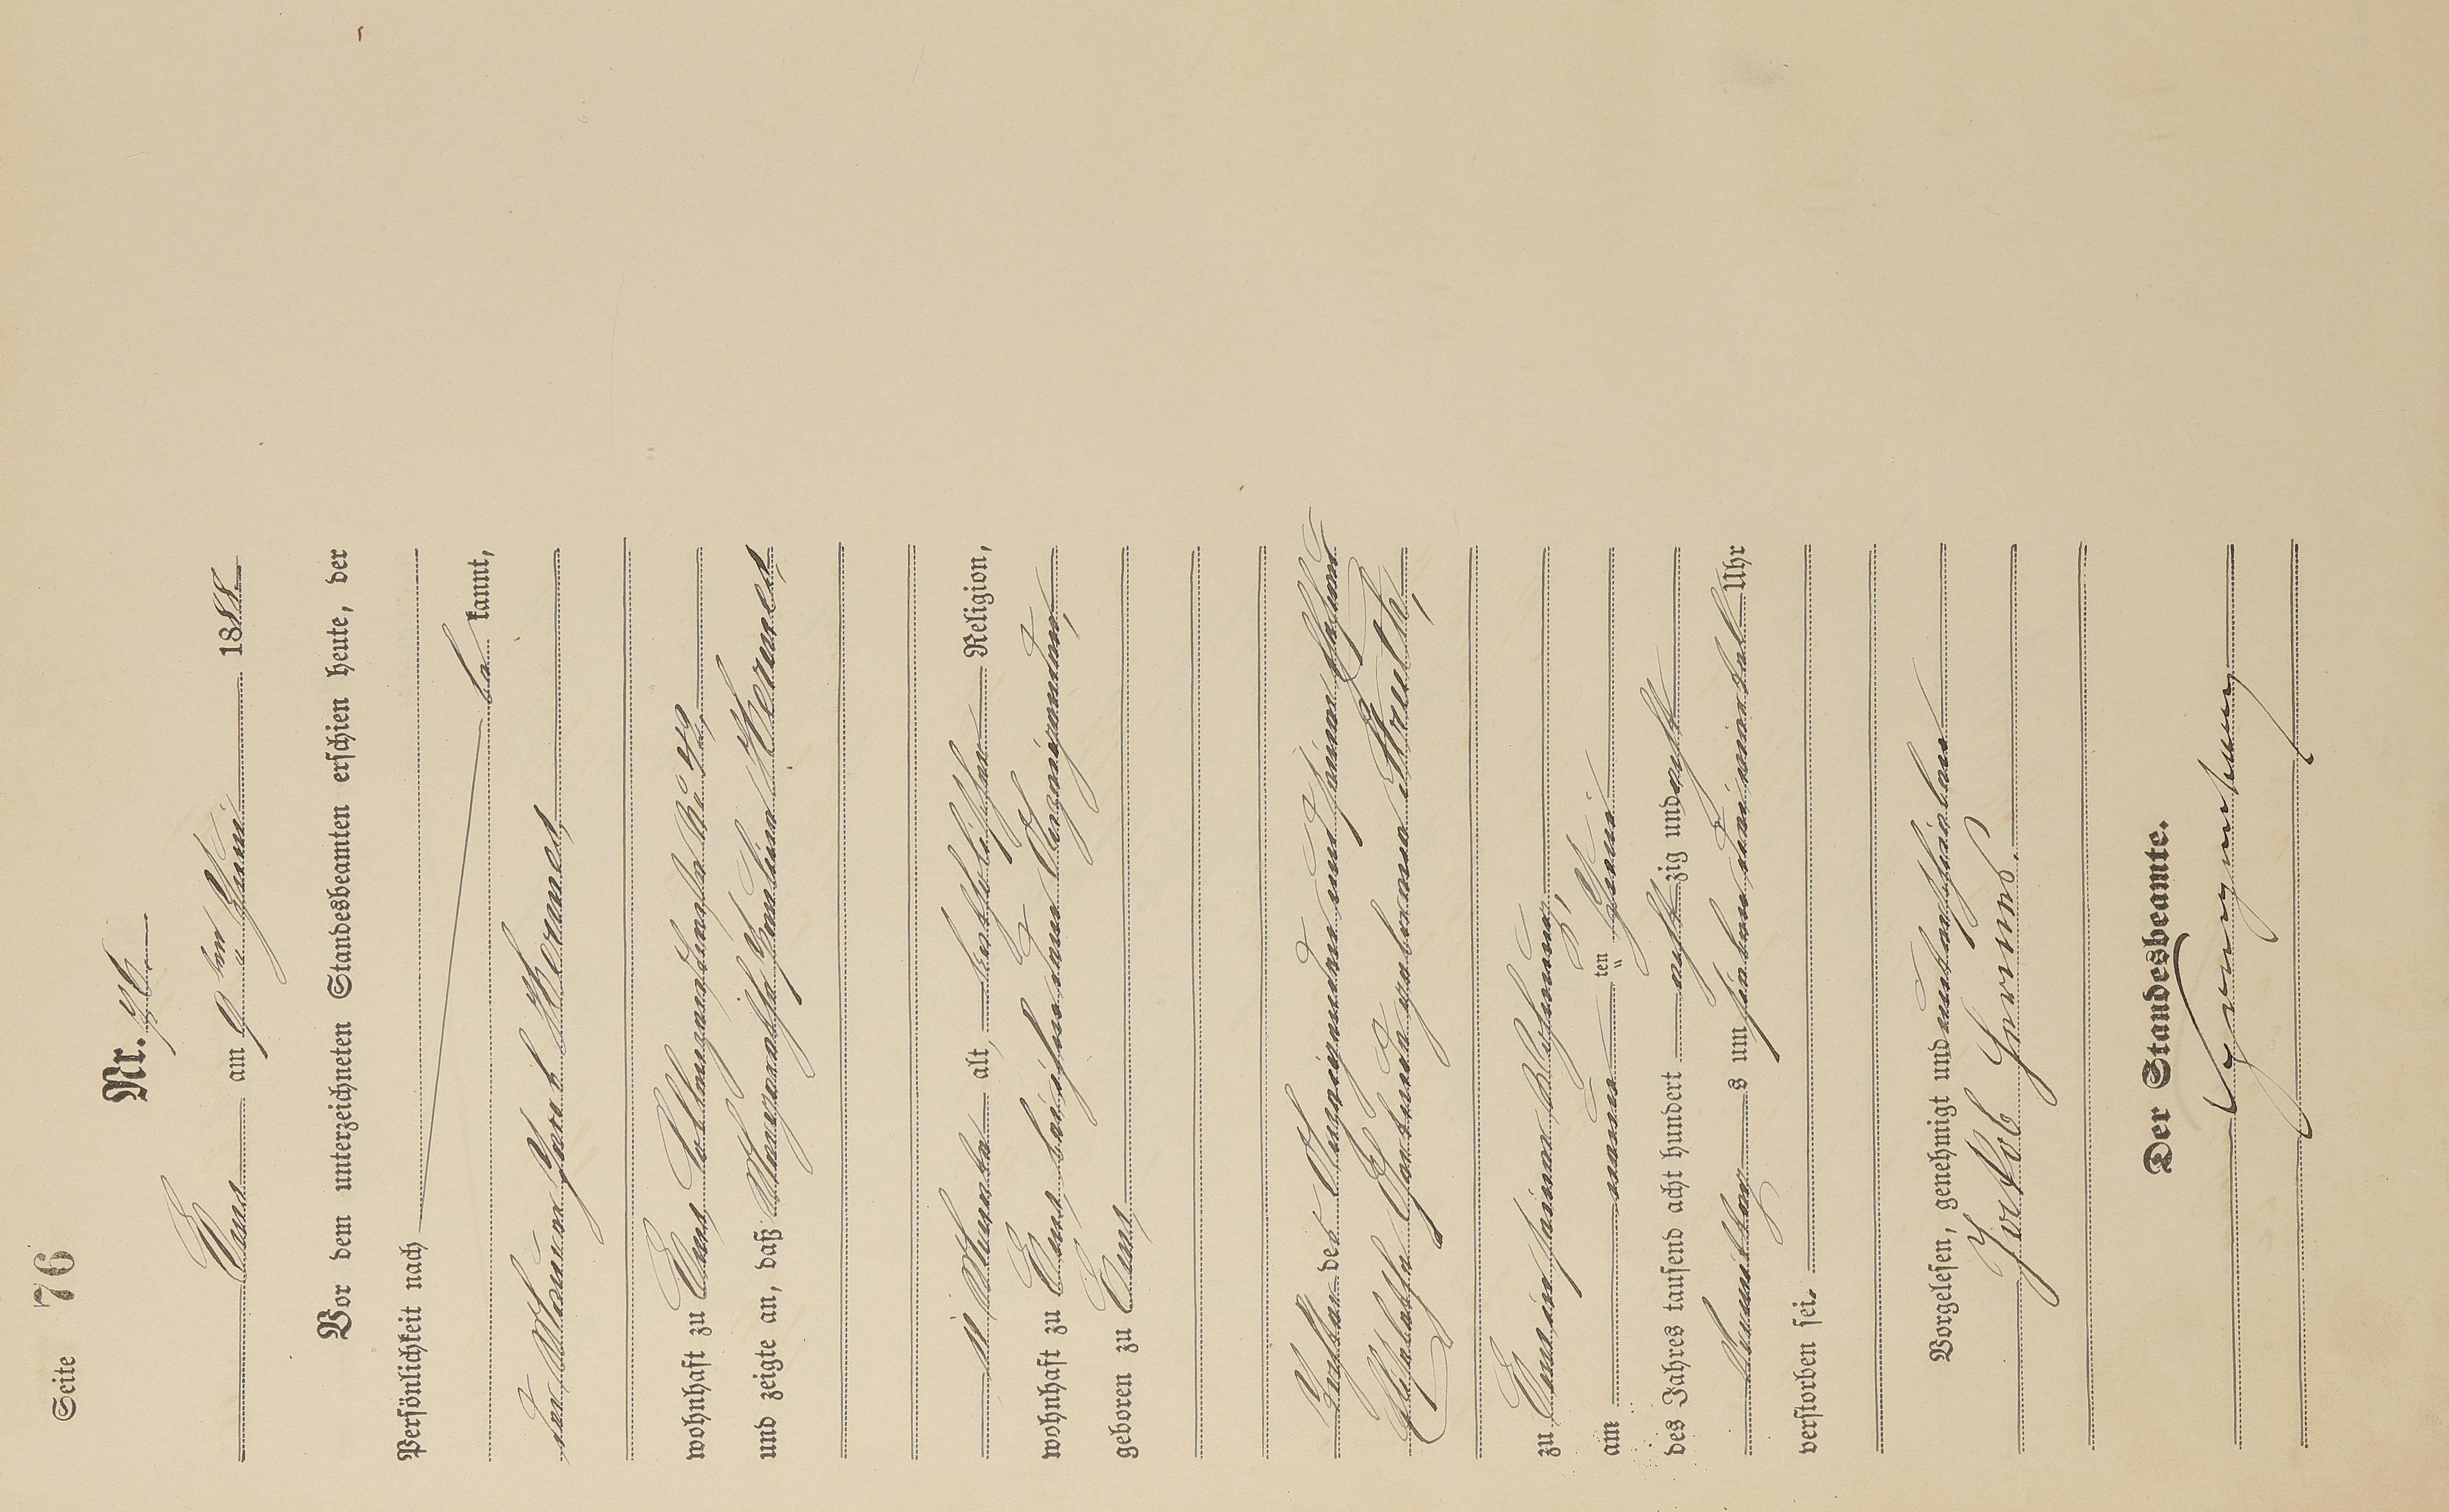 Seite 76
Nr. 76.
Ems am 9ten Juni 1888.
Vor dem unterzeichneten Standesbeamten erschien heute, der
Persönlichkeit nach
be kannt,
der Maurer Jacob Hermes,
wohnhaft zu Ems, No 49,
und zeigte an, daß Margarethe Paulina Hermes,
11 Monate alt, katholischer Religion,
wohnhaft zu Ems bei ihrem dem Anzeigenden,
geboren zu Ems,
Tochter des Anzeigenden und seiner Ehefrau
Elisabethe geborene Struth,
zu Ems in seiner Wohnung,
am neunten ten Juni
des Jahres tausend acht hundert acht zig und acht
Vormittags um sieben drei viertel Uhr
verstorben sei.
Vorgelesen, genehmigt und unterschrieben
Jakob Hermes.
Der Standesbeamte.